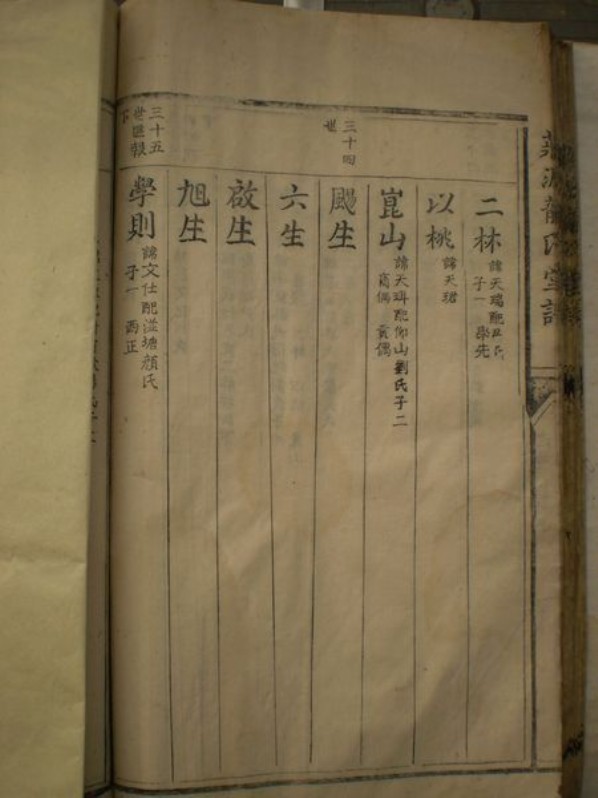 龍氏
二林
諱天瑞配尹氏
子一 學先
以桃
諱天珺
崑山
諱天璋配仰山劉氏子二
三十四
世
颺生
六生
啟生
旭生
三十五
世
下
學則
諱文仕配溢塘顏氏
子一 酉正